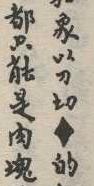 象以刀切◆的
都只能是肉塊